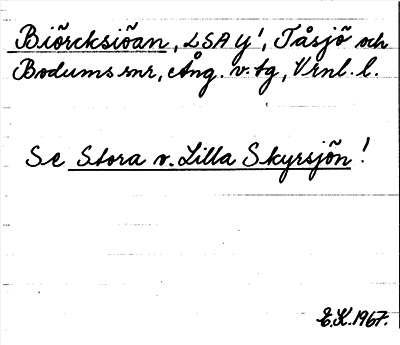 Biörcksiöan, LSA Y', Tåsjö och
Bodums snr, Ång. v. tg, Vrnl. l.
Se Stora v. Lilla Skyrsjön!
E.K. 1967.